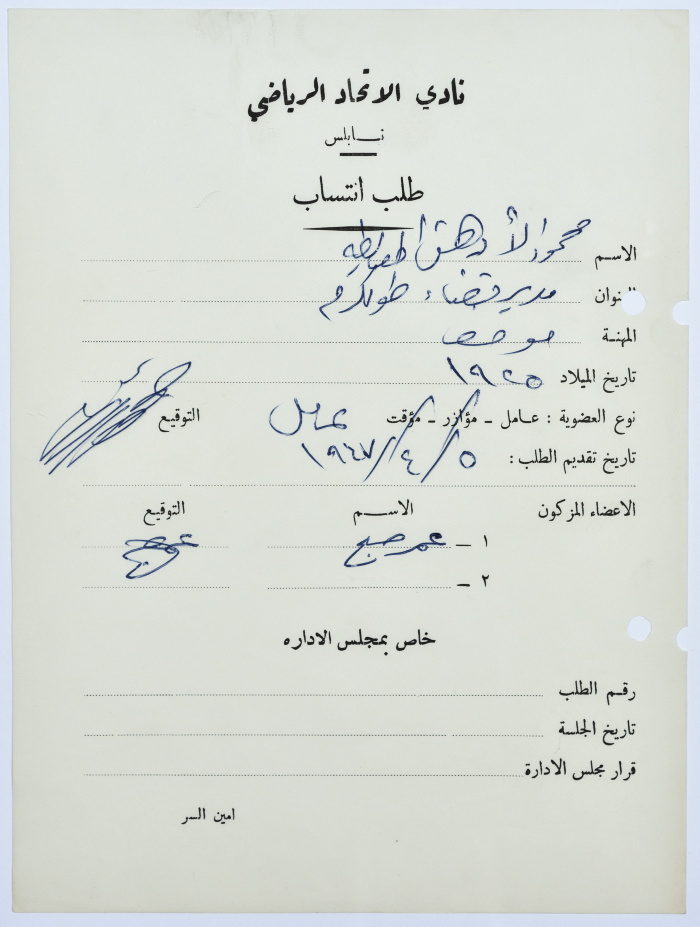 نادي الاتحاد الرياضي
نابلس
طلب انتساب
الاسم محمود الأدهم
العنوان مدير قضاء طولكرم
المهنة موظف
تاريخ الميلاد ١٩٢٥
نوع العضوية : عامل - مؤازر - مؤقت عامل التوقيع
تاريخ تقديم الطلب : ٥/٤/١٩٦٧
الاعضاء المزكون الاسم التوقيع
١ - عمر صبح
٢ -
خاص بمجلس الاداره
رقم الطلب
تاريخ الجلسة
قرار مجلس الادارة
امين السر